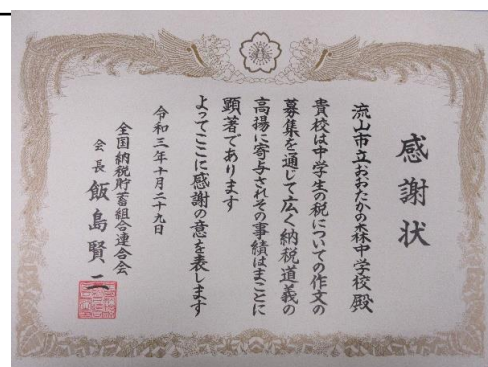 感謝状
流山市立おおたかの森中学校 殿
貴校は中学生の税についての作文の
募集を通じて広く納税道義の
高揚に寄与されその事績はまことに
顕著であります
よってここに感謝の意を表します
令和三年十月二十九日
全国納税貯蓄組合連合会
会長 飯島賢二